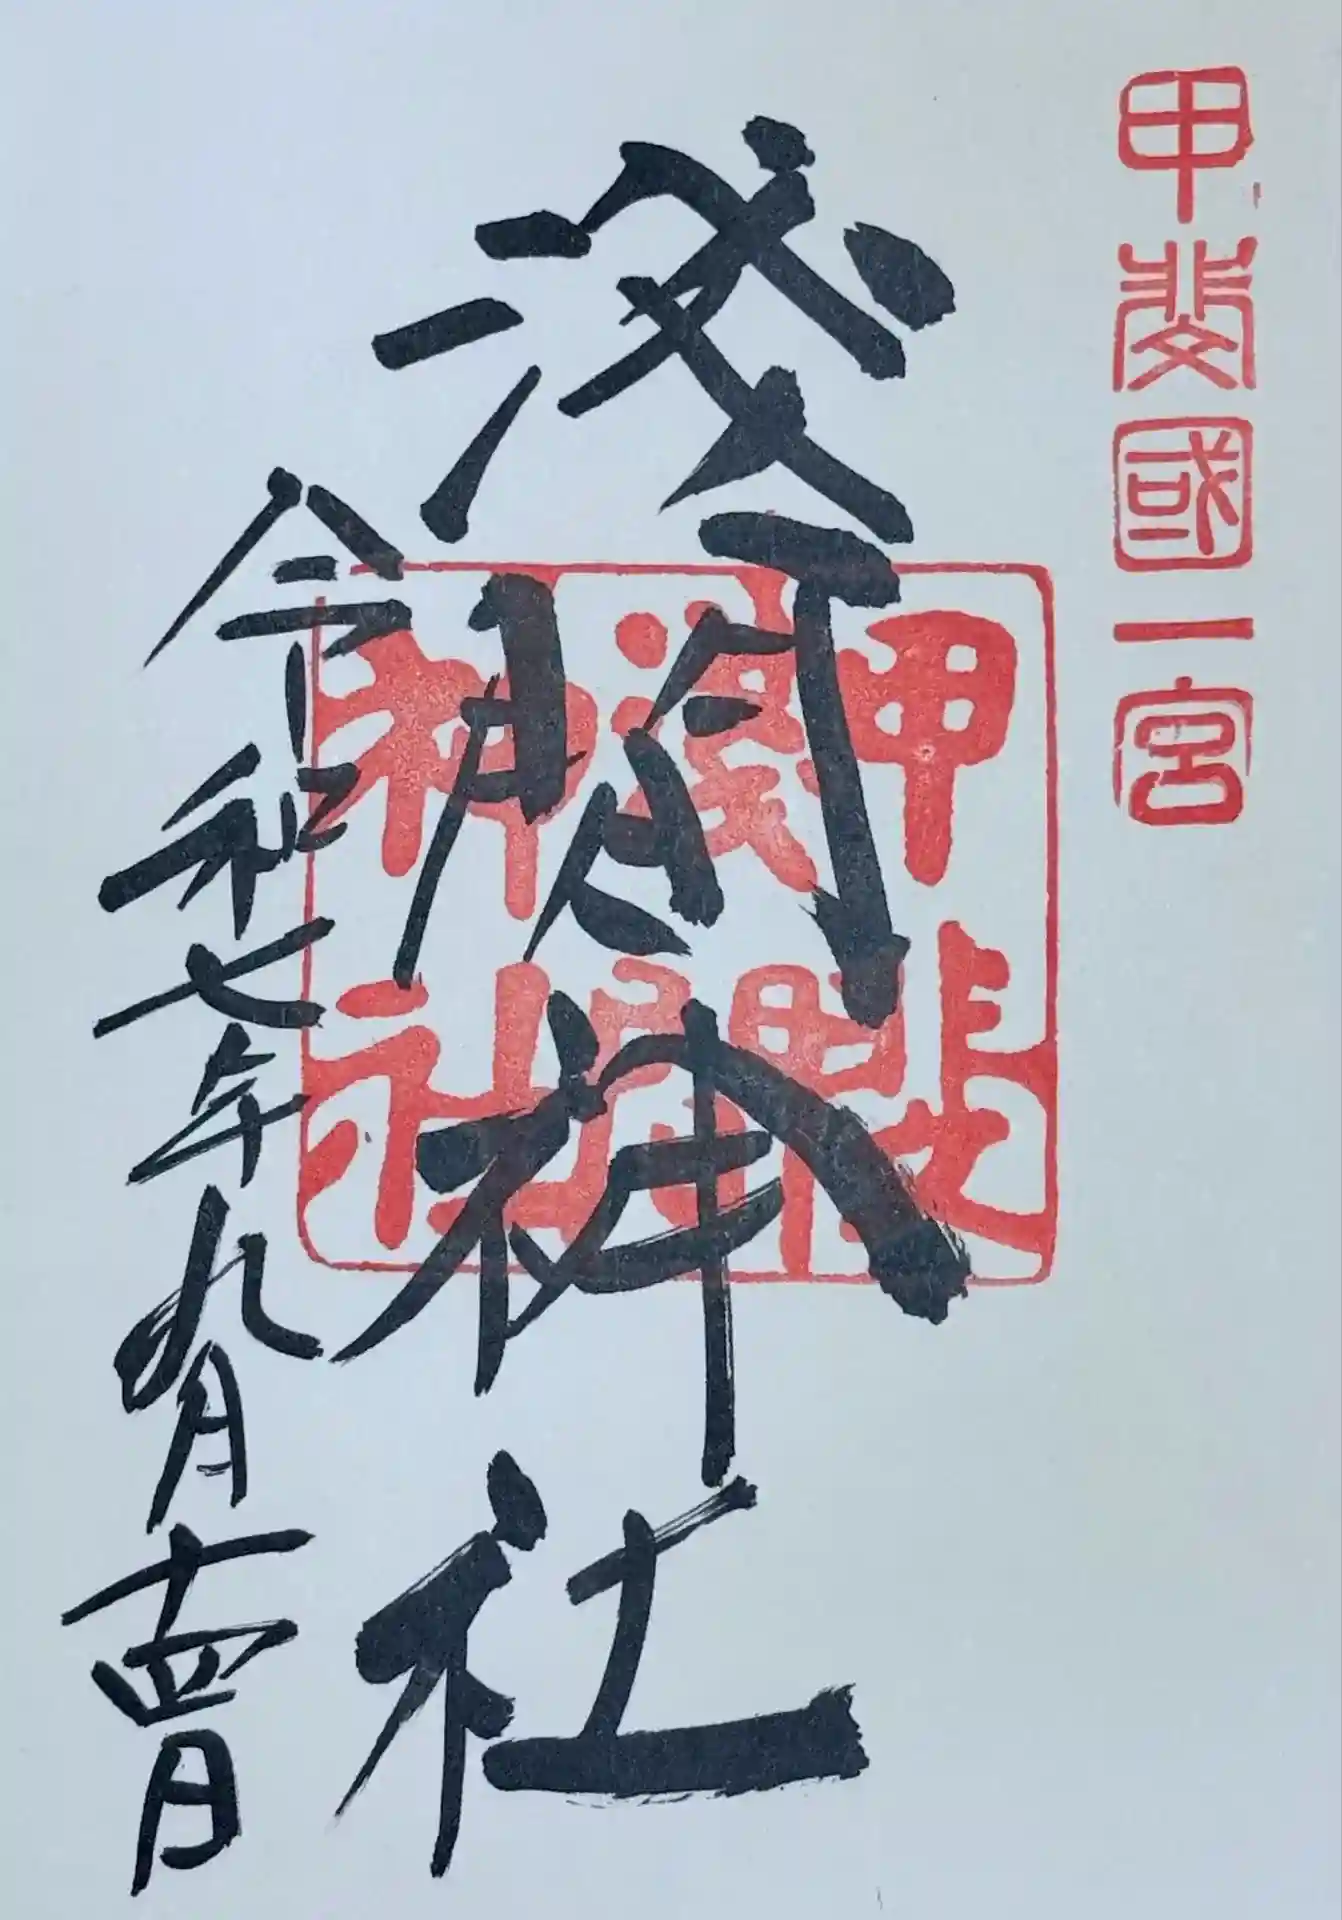 甲斐國一宮
淺間神社
甲斐
淺間
神社
令和七年九月十四日